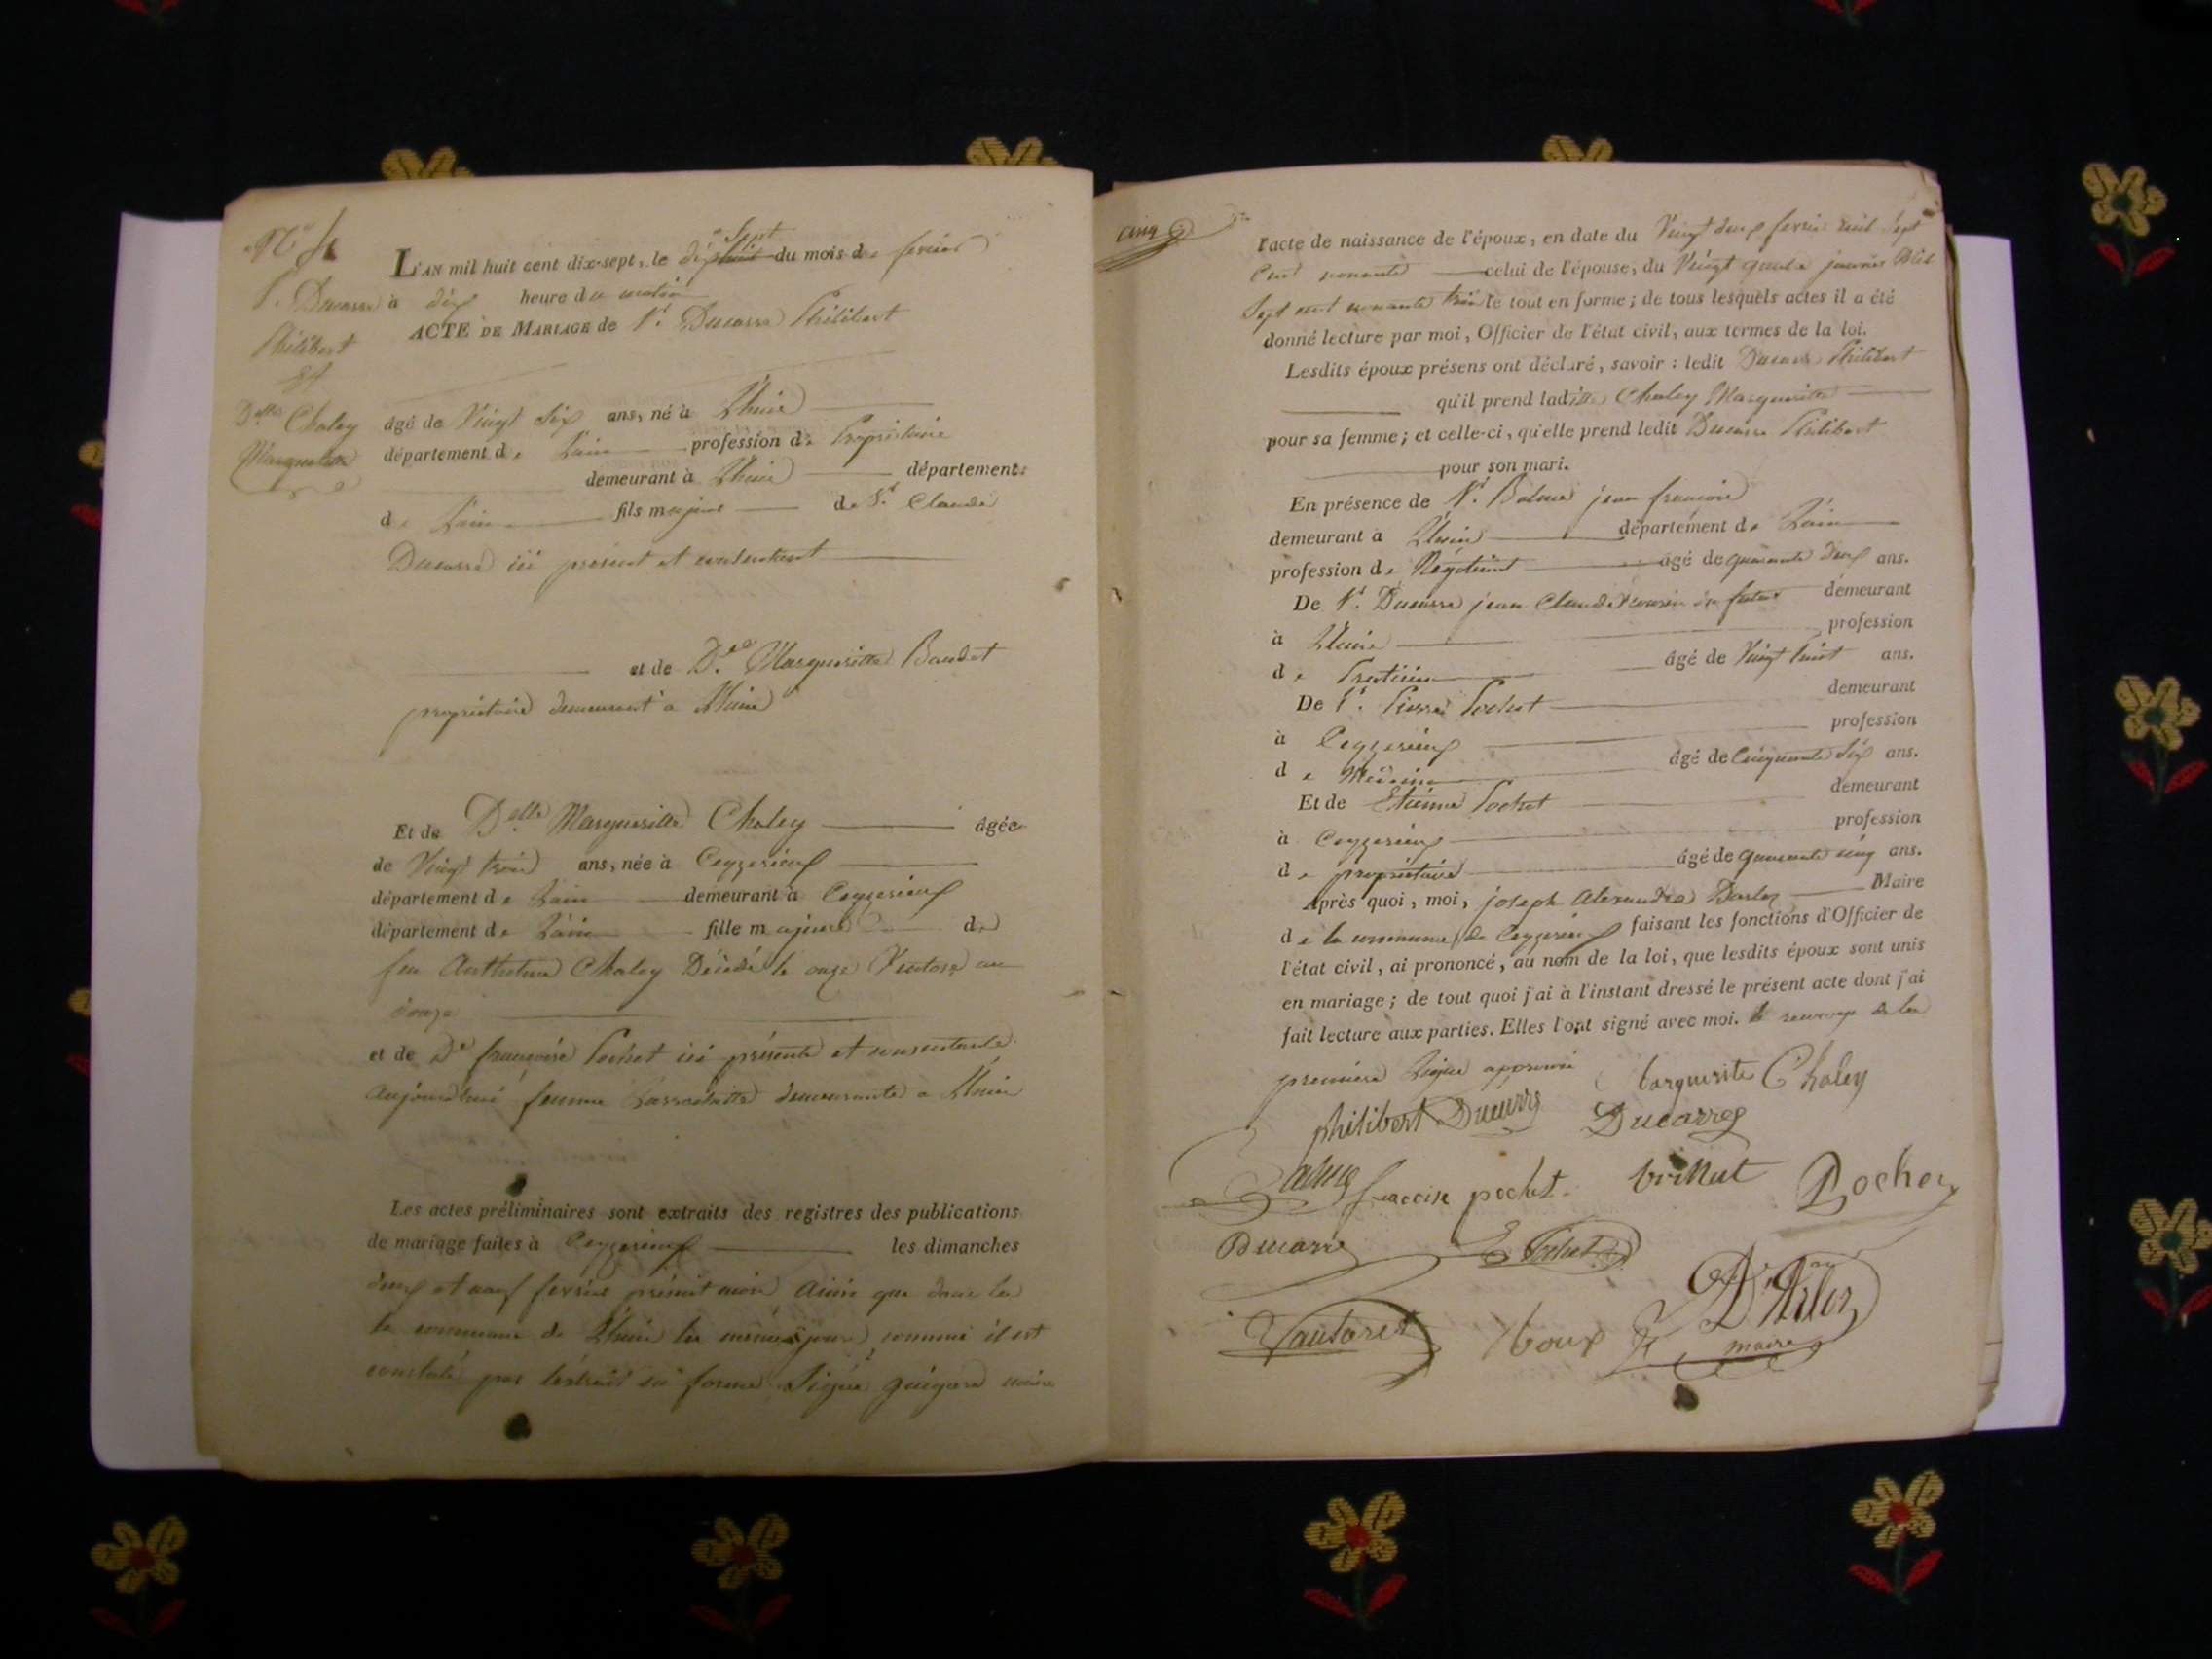 N° 4
L'AN mil huit cent dix-sept, le dix sept huit du mois de fevrier
S. Ducarre à dix heure du matin
Philibert
ACTE DE MARIAGE de Sr. Ducarre Philibert
Et
Delle Chaley
Marguerite
âgé de Vingt Six ans, né à Lhuis
département de Lain profession de Propriétaire
demeurant à Lhuis département
de Lain fils majeur de Sr. Claude
Ducarre ici présent et consentent
et de De. Margueritte Baudet
propriétaire demeurant a Lhuis
Et de Delle Marguerite Chaley âgée
de Vingt trois ans, née à Ceyzerieux
département de Lain demeurant à Ceyzerieux
département de Lain fille majeure de
feu Anthelme Chaley Décédé le onze Ventose an
douze
et de De françoise Pochet ici présente et consentente
aujourdhui femme demeurante a Lhuis
Les actes préliminaires sont extraits des registres des publications
de mariage faites à Ceyzerieux les dimanches
deux et neuf fevrier présent mois ainsi que dans la
la commune de Lhuis les mêmes jours, comme il est
constaté par lextrait en forme Signé guigard maire
cinq
l'acte de naissance de l'époux, en date du Vingt deux fevrier mil Sept
Cent nonante celui de l'épouse, du Vingt quatre janvier Mil
Sept cent nonante trois le tout en forme; de tous lesquels actes il a été
donné lecture par moi, Officier de l'état civil, aux termes de la loi.
Lesdits époux présens ont déclaré, savoir : ledit Ducarre Philibert
qu'il prend ladite Chaley Marguerite
pour sa femme; et celle-ci, qu'elle prend ledit Ducarre Philibert
pour son mari.
En présence de Sr. Balme jean françois
demeurant à Lhuis département de Lain
profession de Négotiant âgé de quarante deux ans.
De Sr. Ducarre jean Claude cousin du futur demeurant
à Lhuis profession
de Praticien âgé de Vingt huit ans.
De Sr. Pierre Pochet demeurant
à Ceyzerieux profession
de Médecin âgé de Cinquante Six ans.
Et de Etienne Pochet demeurant
à Ceyzerieux profession
de propriétaire âgé de quarante cinq ans.
Après quoi, moi, joseph Alexandre Darloz Maire
de la commune de Ceyzerieux faisant les fonctions d'Officier de
l'état civil, ai prononcé, au nom de la loi, que lesdits époux sont unis
en mariage; de tout quoi j'ai à l'instant dressé le présent acte dont j'ai
fait lecture aux parties. Elles l'ont signé avec moi. le renvoy de la
première ligne approuvé
Marguerite Chaley
philibert Ducarre Ducarre
Balme francoise pochet Pochet
Ducarre E Pochet
Vautaret Roux D'Arloz
maire